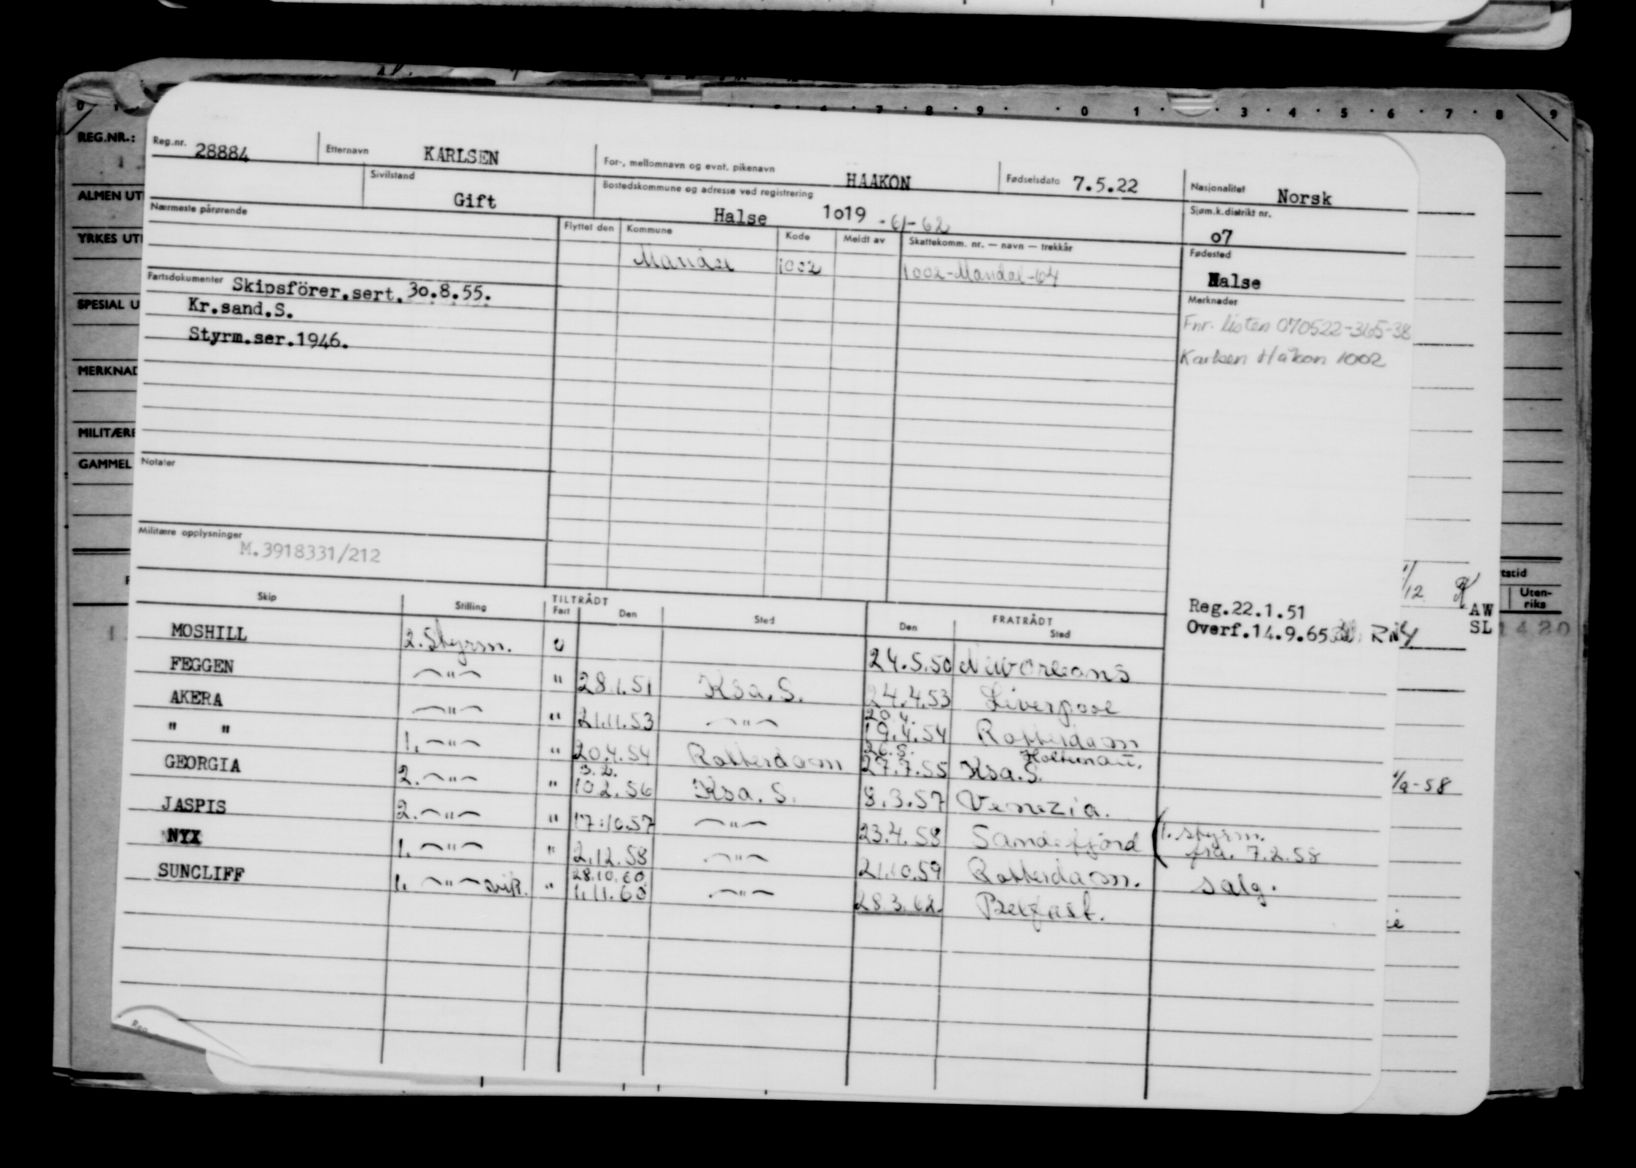 0 1 7 8 9 0 1 3 4 5 6 7 8 9
REG.NR.:
ALMEN UT
YRKES UT
SPESIAL U
MERKNAD
MILITÆRE
GAMMEL
Reg.nr. 28884
Etternavn KARLSEN
For-, mellomnavn og evnt. pikenavn HAAKON
Fødselsdato 7.5.22
Nasjonalitet Norsk
Sivilstand Gift
Bostedskommune og adresse ved registrering
Halse 1o19 -61-62
Sjøm.k.distrikt nr.
o7
Nærmeste pårørende
Flyttet den Kommune Kode Meldt av Skattekomm. nr. — navn — trekkår
Mandal 1002 1002-Mandal-64
Fødested
Halse
Fartsdokumenter Skipsförer.sert.3o.8.55.
Kr.sand.S.
Styrm.ser.1946.
Merknader
Fnr. listen 070522-365-38
Karlsen Håkon 1002
Notater
Militære opplysninger
M.3918331/212
Reg.22.1.51
Overf.14.9.65
AW
SL
tstid
Uten-
riks
1420
Skip Stilling TILTRÅDT Fart Den Sted FRATRÅDT Den Sted
MOSHILL 2. Styrm. U 24.5.50 New Orleans
FEGGEN —"— " 28.1.51 Ksa. S. 24.4.53 Liverpool
20.4.
AKERA —"— " 21.11.53 —"— 19.4.54 Rotterdam
26.8. Holtenau.
" " 1. —"— " 20.4.54 Rotterdam 27.7.55 Ksa. S.
3.2.
GEORGIA 2. —"— " 10.2.56 Ksa. S. 8.3.57 Venezia.
JASPIS 2. —"— " 17.10.57 —"— 23.4.58 Sandefjord (1. styrm.
fra. 7.2.58
NYX 1. —"— " 2.12.58 —"— 21.10.59 Rotterdam. salg.
28.10.60
SUNCLIFF 1. —"— " 1.11.60 —"— 28.3.62 Belfast.